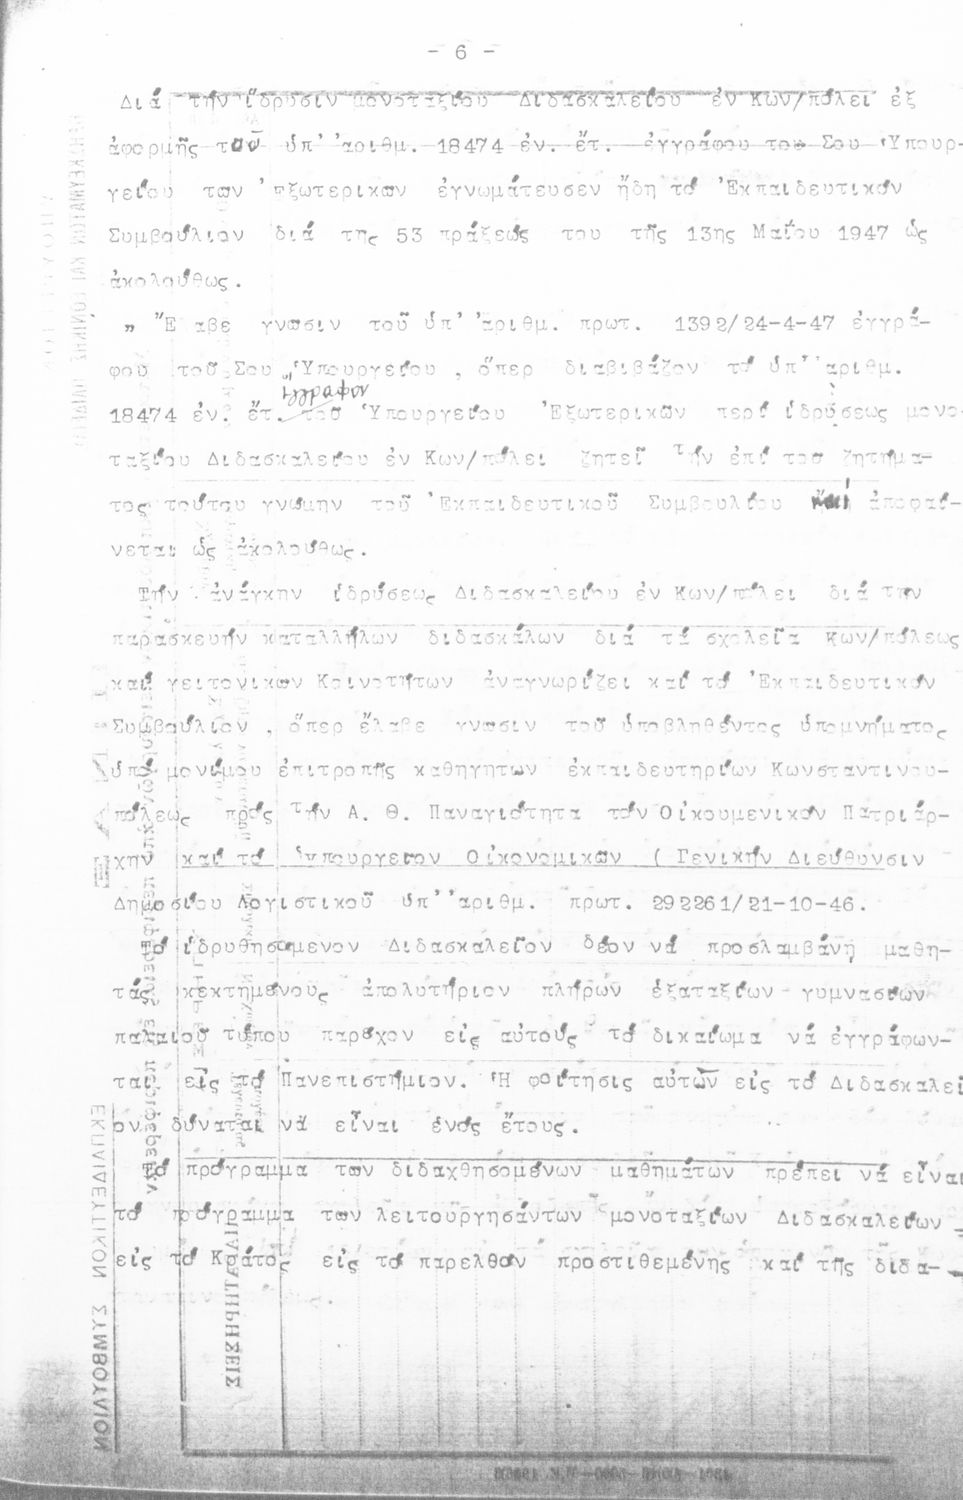 - 6 -
Διά τήν ἵδρυσιν μονοταξίου Διδασκαλείου ἐν Κων/πόλει ἐξ
ἀφορμῆς τοῦ ὑπ' ἀριθμ. 18474 ἐν. ἔτ. ἐγγράφου του Σου Ὑπουρ-
γείου των Ἐξωτερικων ἐγνωμάτευσεν ἤδη τό Ἐκπαιδευτικόν
Συμβούλιον διά της 53 πράξεώς του τῆς 13ης Μαΐου 1947 ὡς
ἀκολούθως.
" Ἔλαβε γνωσιν τοῦ ὑπ' ἀριθμ. πρωτ. 1392/24-4-47 ἐγγρά-
φου τοῦ Σου Ὑπουργείου , ὅπερ διαβιβάζον τό ὑπ' ἀριθμ.
ἔγγραφον
18474 ἐν. ἔτ. τοῦ Ὑπουργείου Ἐξωτερικῶν περί ἱδρύσεως μονο-
ταξίου Διδασκαλείου ἐν Κων/πόλει ζητεῖ τήν ἐπί του ζητήμα-
τος τούτου γνώμην τοῦ Ἐκπαιδευτικοῦ Συμβουλίου καί ἀποφαί-
νεται ὡς ἀκολούθως.
Τήν ἀνάγκην ἱδρύσεως Διδασκαλείου ἐν Κων/πόλει διά την
παρασκευήν καταλλήλων διδασκάλων διά τά σχολεῖα Κων/πόλεως
καί γειτονικων Κοινοτήτων ἀναγνωρίζει καί τό Ἐκπαιδευτικόν
Συμβούλιον , ὅπερ ἔλαβε γνωσιν τοῦ ὑποβληθέντος ὑπομνήματος
ὑπό μονίμου ἐπιτροπῆς καθηγητων ἐκπαιδευτηρίων Κωνσταντινου-
πόλεως πρός τήν Α. Θ. Παναγιότητα τόν Οἰκουμενικόν Πατριάρ-
χην καί τό Ὑπουργειον Οἰκονομικῶν ( Γενικήν Διεύθυνσιν
Δημοσίου Λογιστικοῦ ὑπ' ἀριθμ. πρωτ. 292261/21-10-46.
Τό ἱδρυθησόμενον Διδασκαλεῖον δέον νά προσλαμβάνῃ μαθη-
τάς κεκτημένους ἀπολυτήριον πλήρων ἑξαταξίων γυμνασίων
παλαιοῦ τύπου παρέχον εἰς αὐτούς τό δικαίωμα νά ἐγγράφων-
ται εἰς τό Πανεπιστήμιον. Ἡ φοίτησις αὐτῶν εἰς τό Διδασκαλεῖ
ον δύναται νά εἶναι ἑνός ἔτους.
Τό πρόγραμμα των διδαχθησομένων μαθημάτων πρέπει νά εἶναι
τό πρόγραμμα των λειτουργησάντων μονοταξίων Διδασκαλείων
εἰς τό Κράτος εἰς τό παρελθόν προστιθεμένης καί τῆς διδα-
ΕΚΠΑΙΔΕΥΤΙΚΟΝ ΣΥΜΒΟΥΛΙΟΝ
ΠΑΡΑΤΗΡΗΣΕΙΣ